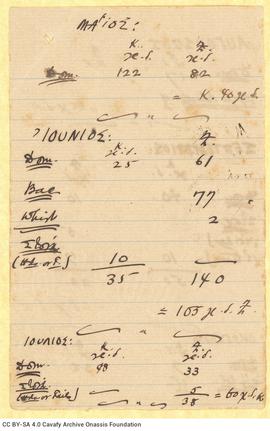 ΜΑΪΟΣ:
Κ. Ζ.
χ.δ. χ.δ.
Dom. 122 82
= Κ. 40 χ.δ.
ΙΟΥΝΙΟΣ:
Κ Ζ
χ.δ. χ.δ.
Dom. 25 61
Bac 77
Whist 2
10
35 140
= 105 χ.δ. Ζ.
ΙΟΥΛΙΟΣ:
χ.δ. χ.δ.
Dom. 98 33
5
38 = 60 χ.δ. Κ.
CC BY-SA 4.0 Cavafy Archive Onassis Foundation